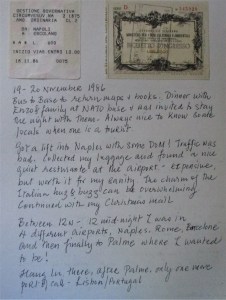 GESTIONE GOVERNATIVA
DA: NAPOLI
A: ERCOLANO
19-20 November 1986
Bus to Base to return maps & books. Dinner with
Enzo & family at NATO base & was invited to stay
the night with them. Always nice to know some
locals when one is a tourist.
Got a lift into Naples with some Dr's! Traffic was
bad. Collected my luggage and found a nice
quiet restaurant at the airport - expensive,
but worth it for my sanity. The charm of the
Italian hug & buzz can be overwhelming
Continued with my Christmas mail
Between 12n - 12 midnight I was in
4 different airports, Naples, Rome,
and then finally to Palma where I wanted
to be!
there, after Palma, only one more
port of call - Lisbon/Portugal